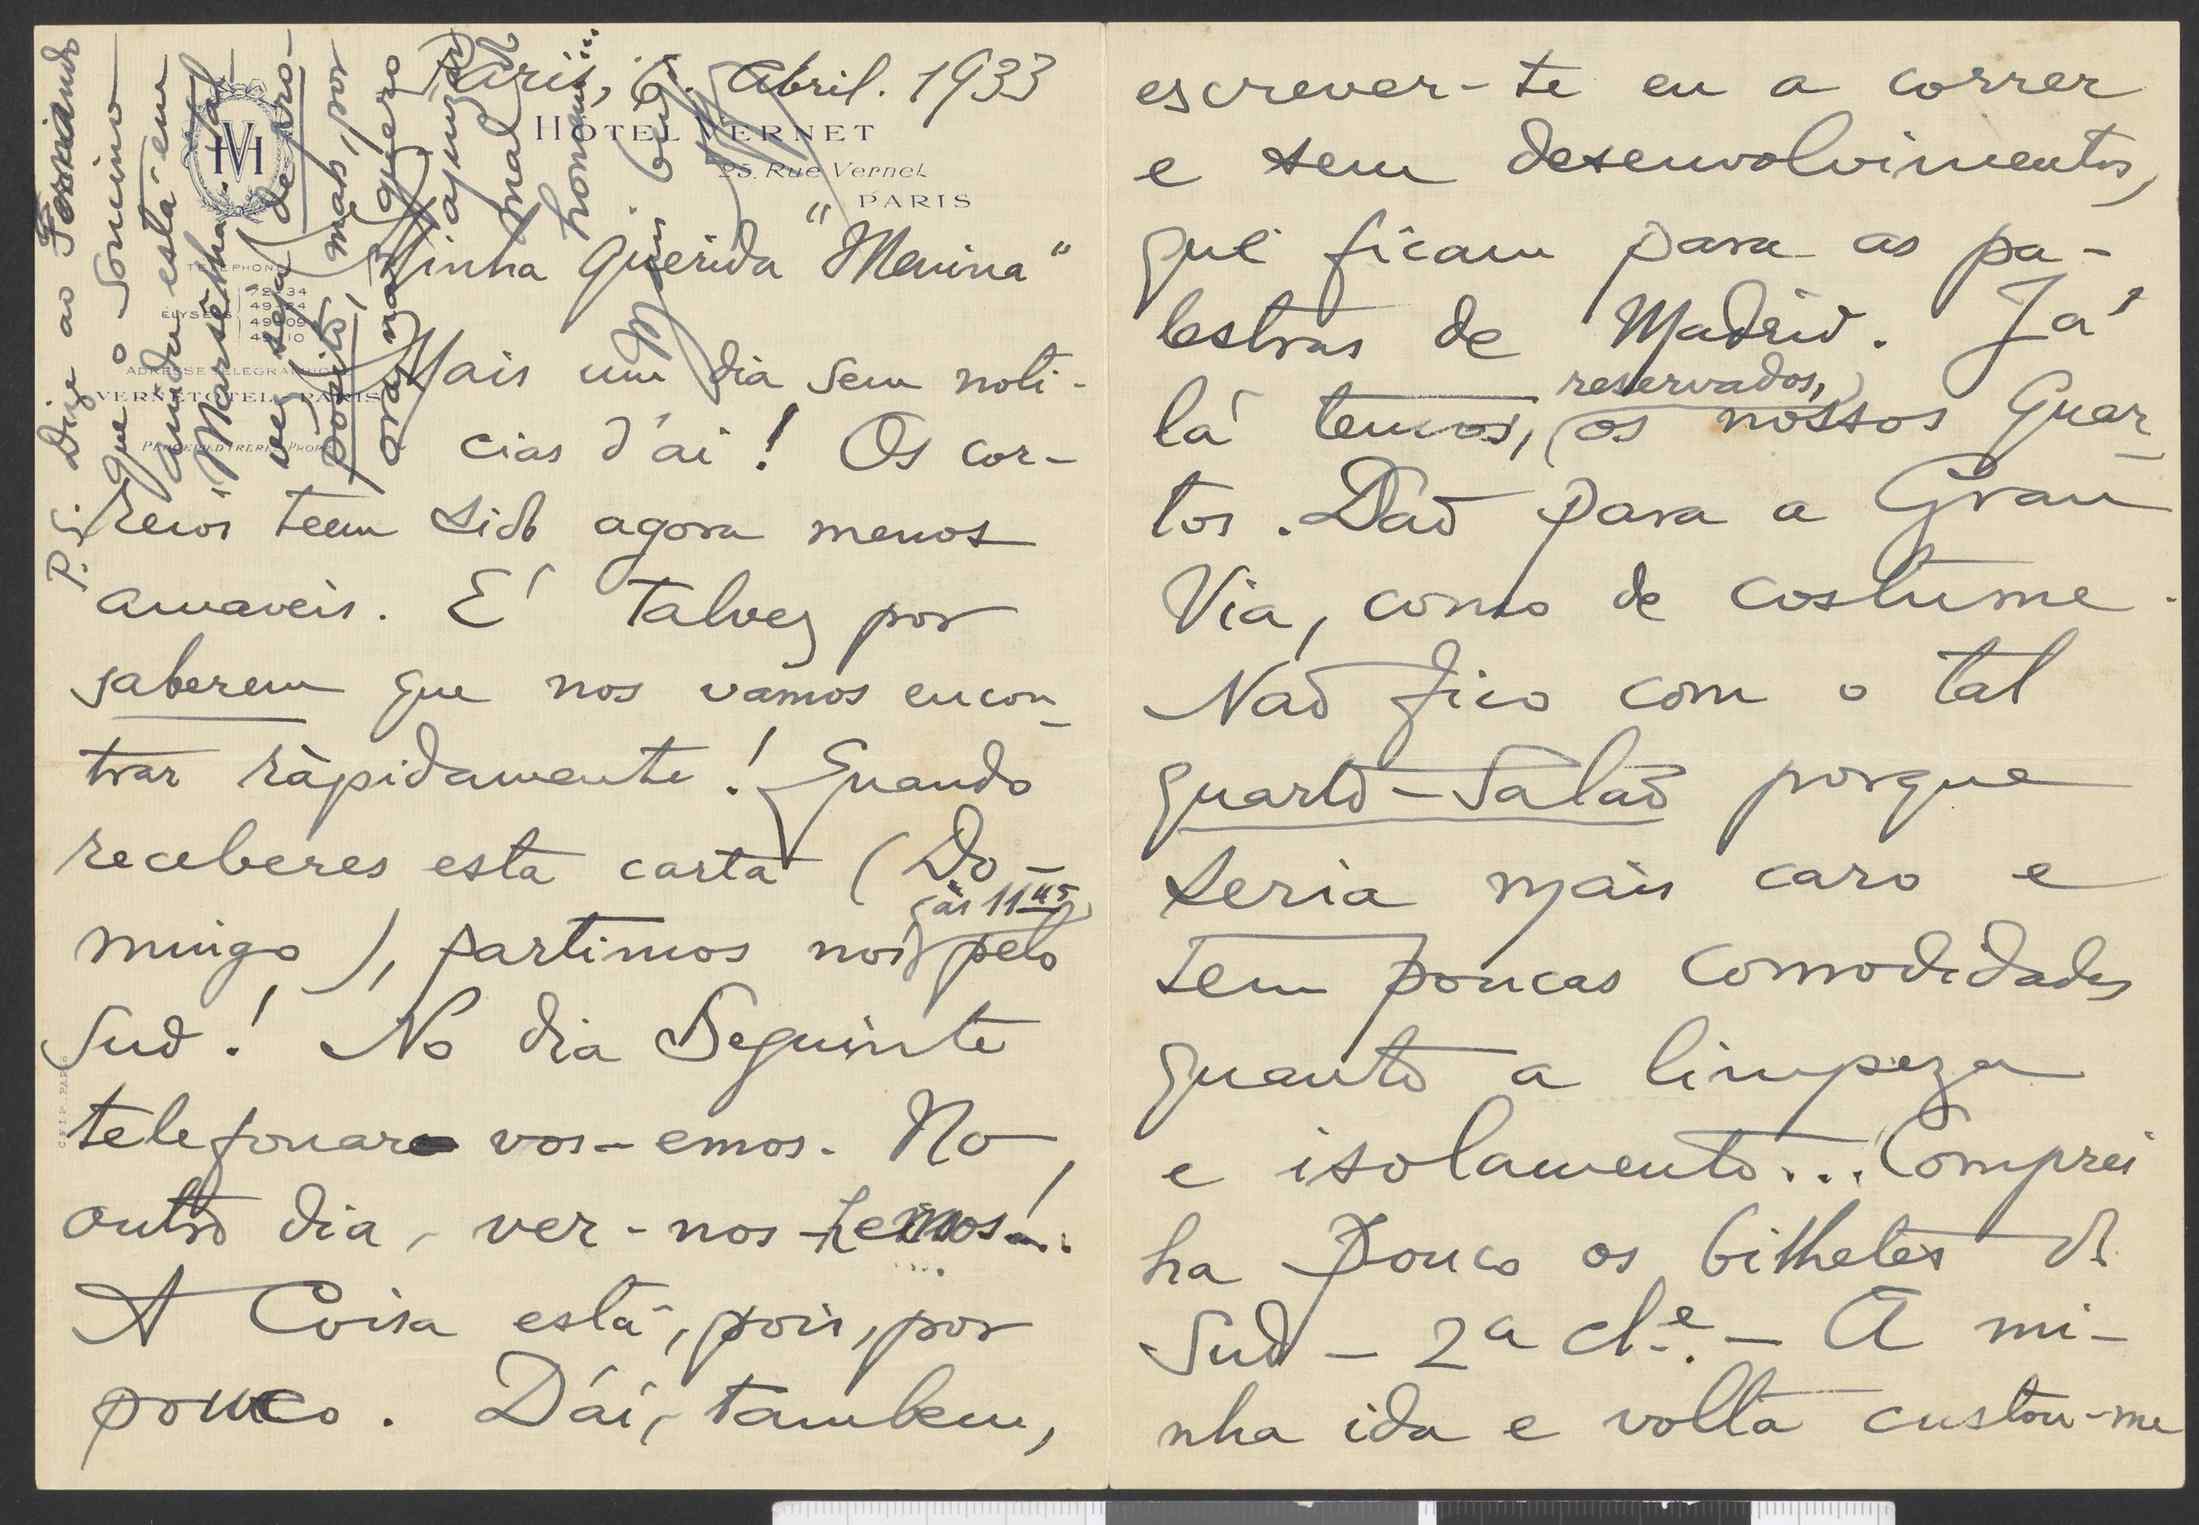 Paris, 6. Abril. 1933
HOTEL VERNET
25, Rue Vernet
PARIS
TELEPHONE
ELYSÉES
ADRESSE TELEGRAPHIQUE
VERNETOTEL PARIS
Minha Querida "Menina"
Mais um dia sem noti-
cias d'ai! Os cor-
reios teem sido agora menos
amaveis. É talvez por
saberem que nos vamos encon-
trar ràpidamente! Quando
receberes esta carta (Do-
mingo), partimos nos (ás 11 45) pelo
Sud! No dia Seguinte
telefonar vos-emos. No
outro dia, ver-nos-hemos!..
A Coisa está, pois, por
pouco. Dái, tambem,
escrever-te eu a correr
e sem desenvolvimentos,
que ficam para as pa-
lestras de Madrid. Já
lá temos, reservados, os nossos Quar-
tos. Daõ para a Gran
Via, como de costume.
Naõ fico com o tal
quarto-Salaõ porque
seria mais caro e
tem poucas comodidades
quanto a limpeza
e isolamento... Comprei
ha pouco os bilhetes d
Sud - 2ª cl.e - A mi-
nha ida e volta custou-me
P.S. Dize ao Fernando
que o Sonino
ainda está em
"Marselha". Tal-
vez seja de pro-
pósito, mas, por
ora, não quero
ajuizar
mal d
homem...